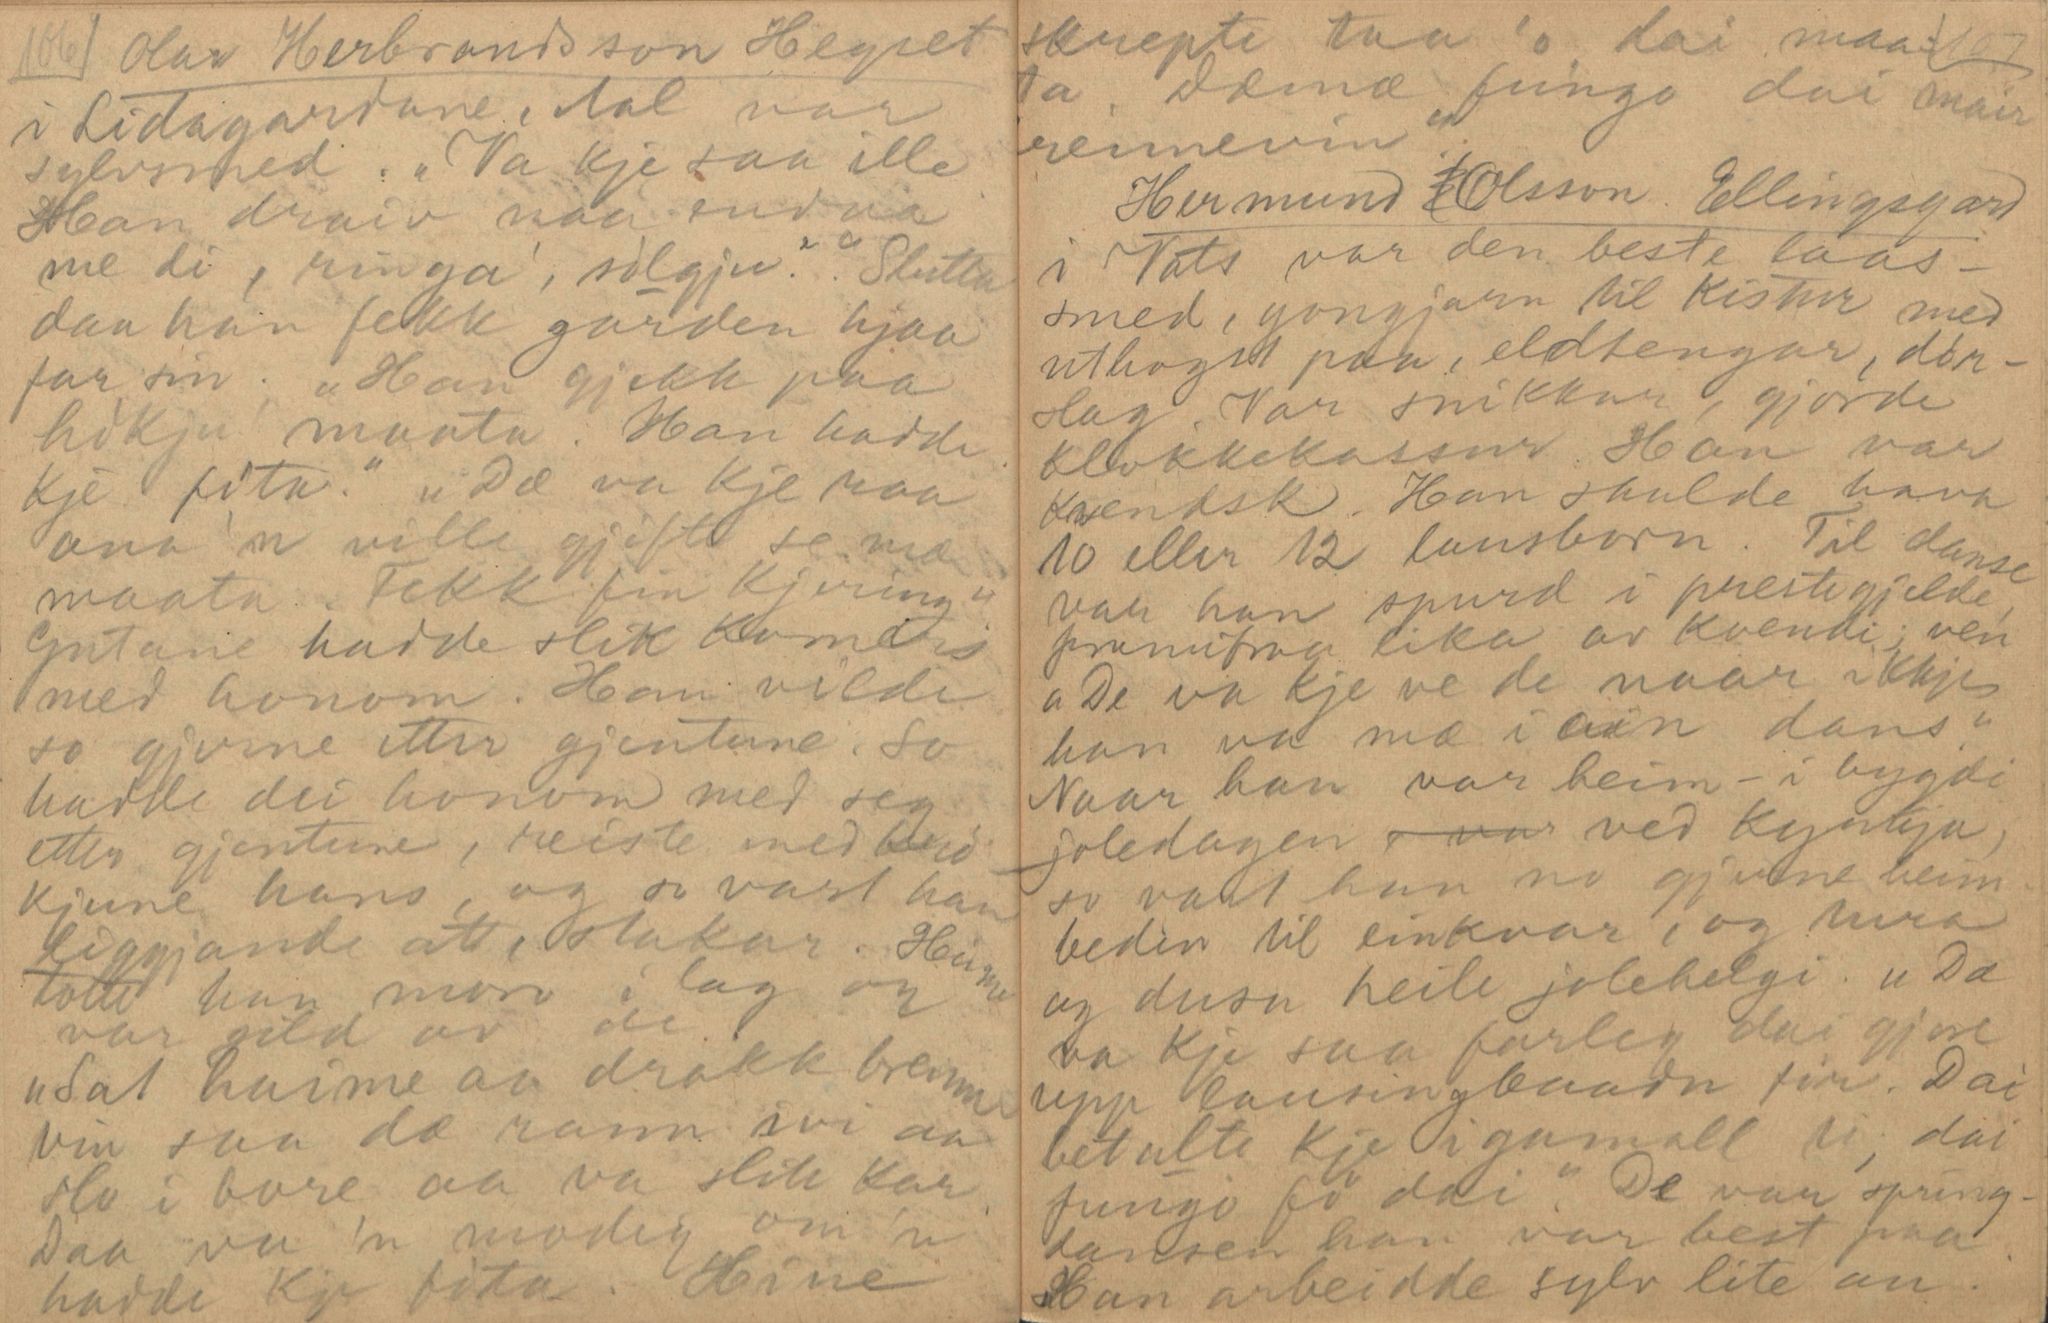 106 Olav Herbrandsson Hegset
i Lidagardane, Aal var
sylvsmed. "Va kje saa ille
Han draiv naa sudva
me di, ringa, sølgju." "Slutta
daa han fekk garden hjaa
far sin. "Han gjekk paa
høkju maata. Han hadde
kje føta." "Dæ va kje raa
ana 'n ville gjifte se mæ
maata. Fekk fin kjering"
Gutane hadde slik komers
med honom. Han vilde
so gjerne etter gjentune. So
hadde dei honom med seg
etter gjentune, reiste med krø
kjune hans, og so vart han
liggjande att, stakar. Heime
totte han moro i lag og
var gild av de
"Sat haime aa drakk brenne
vin saa dæ rann ivi aa
slo i bore aa va slik kar
Daa va 'n modig om 'n
hadde kje føta. Hine
skrepte taa 'o dai maa 107
ta. Dæmæ fungo dai mair
reinnevin"
Hermund Olsson Ellingsgard
i Vats var den beste laas-
smed, gongjarn til kistur med
uthogst paa, eldtengar, dør-
slag. Var snikkar, gjorde
klokkekassur. Han var
kvendsk. Han skulde hava
10 eller 12 lausborn. Til danse
var han spurd i prestegjelde,
framifraa lika av kvendi; ven
"De va kje ve de naar ikkje
han va mæ i ain dans"
Naar han var heim - i bygdi
joledagen ved kyrkja,
so vart han no gjerne heim-
beden til einkvar, og tura
og dusa heile jolehelgi. "Dæ
va kje saa farleg dai gjore
upp lausingbaadn før. Dai
betalte kje i gamall ti, dai
fungo fø dai". De var spring-
dansen han var best paa.
Han arbeidde sylv lite an.